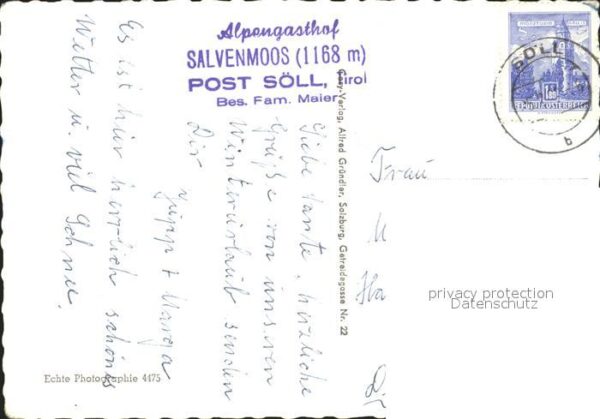 Alpengasthof
SALVENMOOS (1168 m)
POST SÖLL, Tirol
Bes. Fam. Maier
SÖLL
b
REPUBLIK ÖSTERREICH
Liebe Tante, herzliche
Grüße von unserem
Winterurlaub senden
Dir
Jupp + Marga
Es ist hier herrlich schönes
Wetter u. viel Schnee.
Cosy-Verlag, Alfred Gründler, Salzburg, Getreidegasse Nr. 22
Frau
M
Ha
D
privacy protection
Datenschutz
Echte Photographie 4475